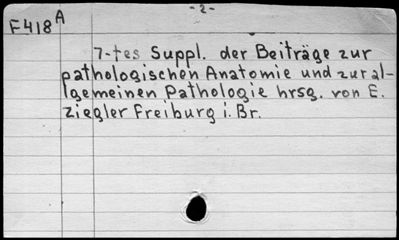 -2-
F418 A
7-tes Suppl. der Beiträge zur
pathologischen Anatomie und zur al-
lgemeinen Pathologie hrsg. von E.
Ziegler Freiburg i. Br.